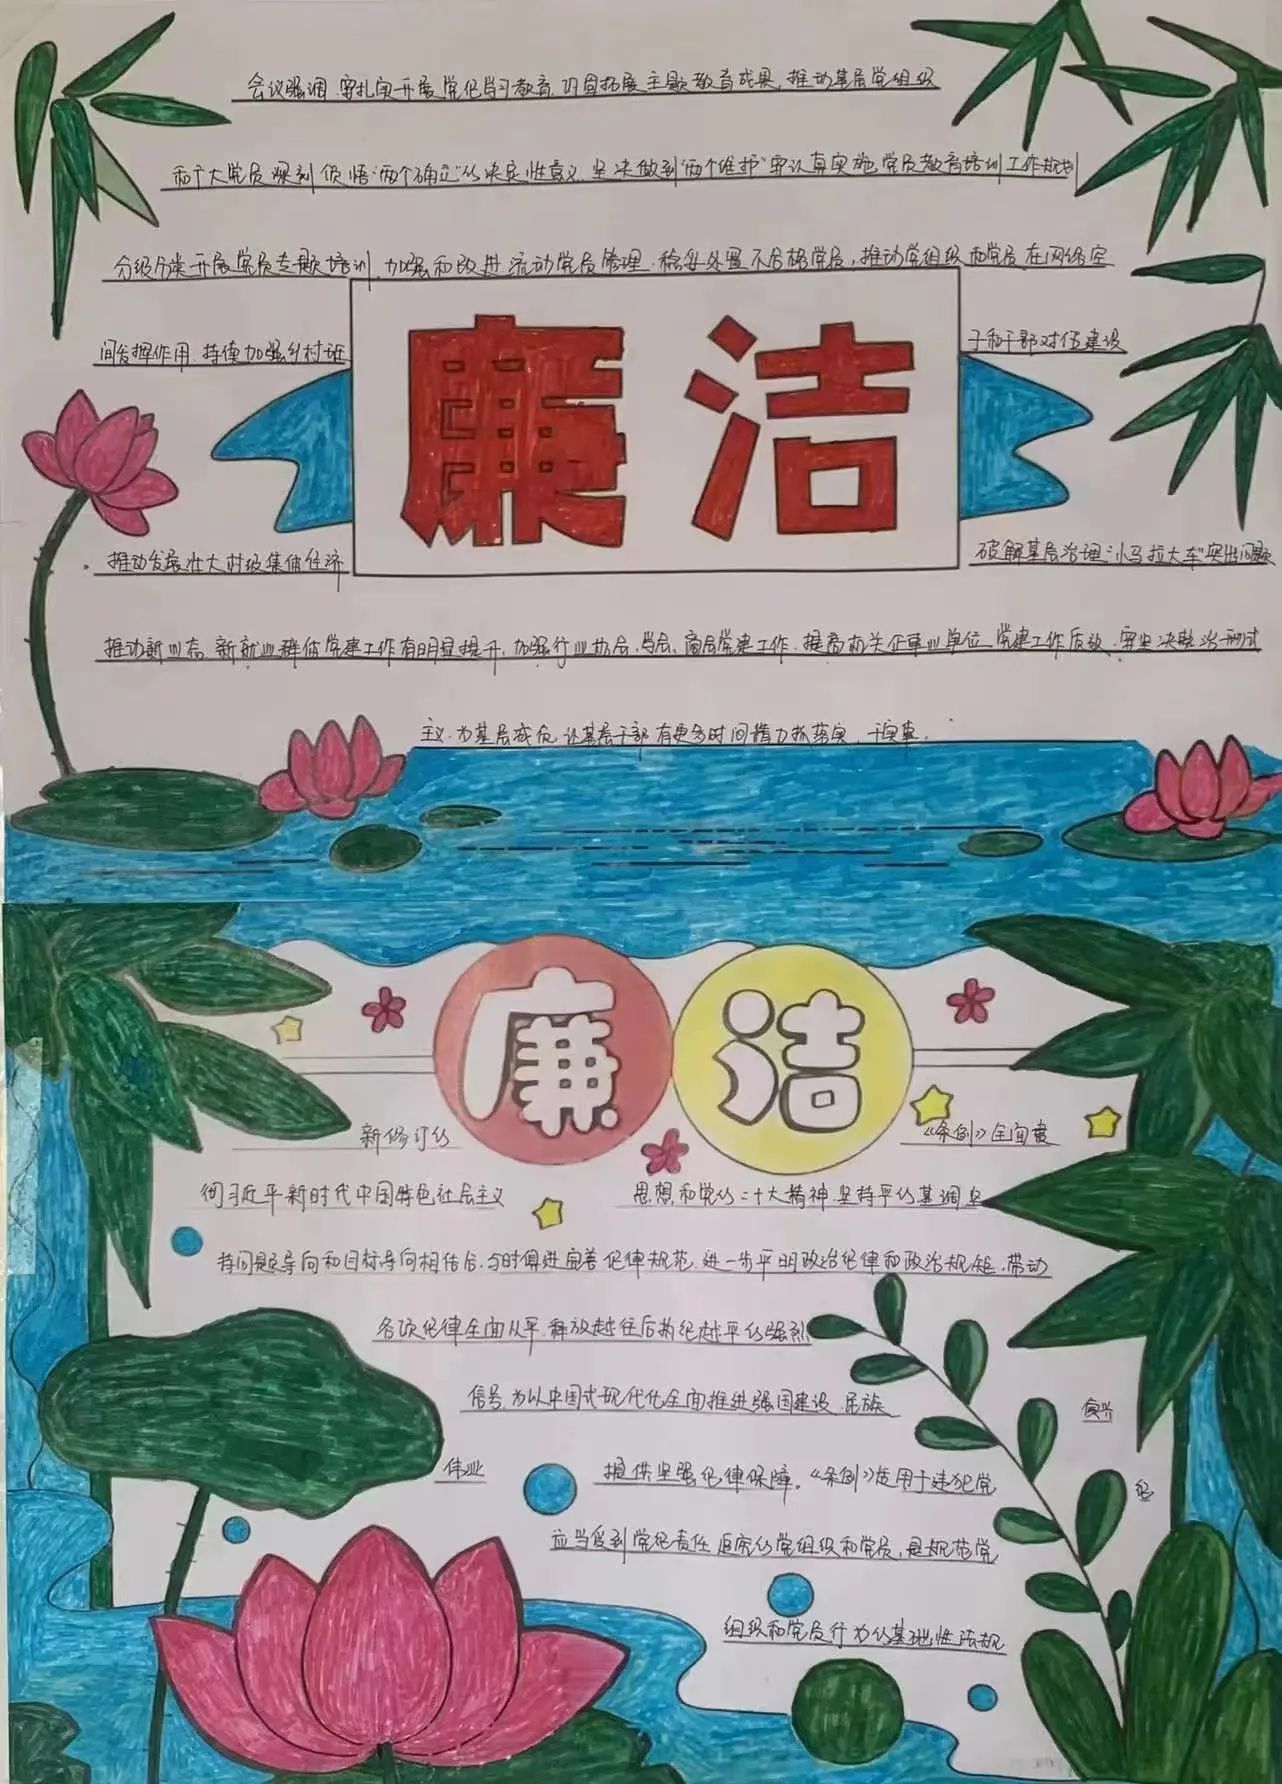 会议强调,要扎实开展党纪学习教育,巩固拓展主题教育成果,推动基层党组织
和广大党员深刻领悟“两个确立”的决定性意义,坚决做到“两个维护”要认真实施党员教育培训工作规划
分级分类开展党员专题培训,加强和改进流动党员管理,稳妥处置不合格党员,推动党组织和党员在网络空
间发挥作用.持续加强乡村班
子和干部队伍建设
廉洁
推动发展壮大村级集体经济
破解基层治理“小马拉大车”突出问题
推动新业态、新就业群体党建工作有明显提升,加强行业协会、学会、商会党建工作.提高机关企事业单位党建工作质效.要坚决整治形式
主义.为基层减负,让基层干部有更多时间精力抓落实,干实事.
廉洁
新修订的
《条例》全面贯
彻习近平新时代中国特色社会主义
思想和党的二十大精神,坚持严的基调,坚
持问题导向和目标导向相结合,与时俱进完善纪律规范,进一步严明政治纪律和政治规矩,带动
各项纪律全面从严,释放越往后执纪越严的强烈
信号,为以中国式现代化全面推进强国建设、民族
复兴
伟业
提供坚强纪律保障。《条例》适用于违犯党
纪
应当受到党纪责任追究的党组织和党员,是规范党
组织和党员行为的基础性法规